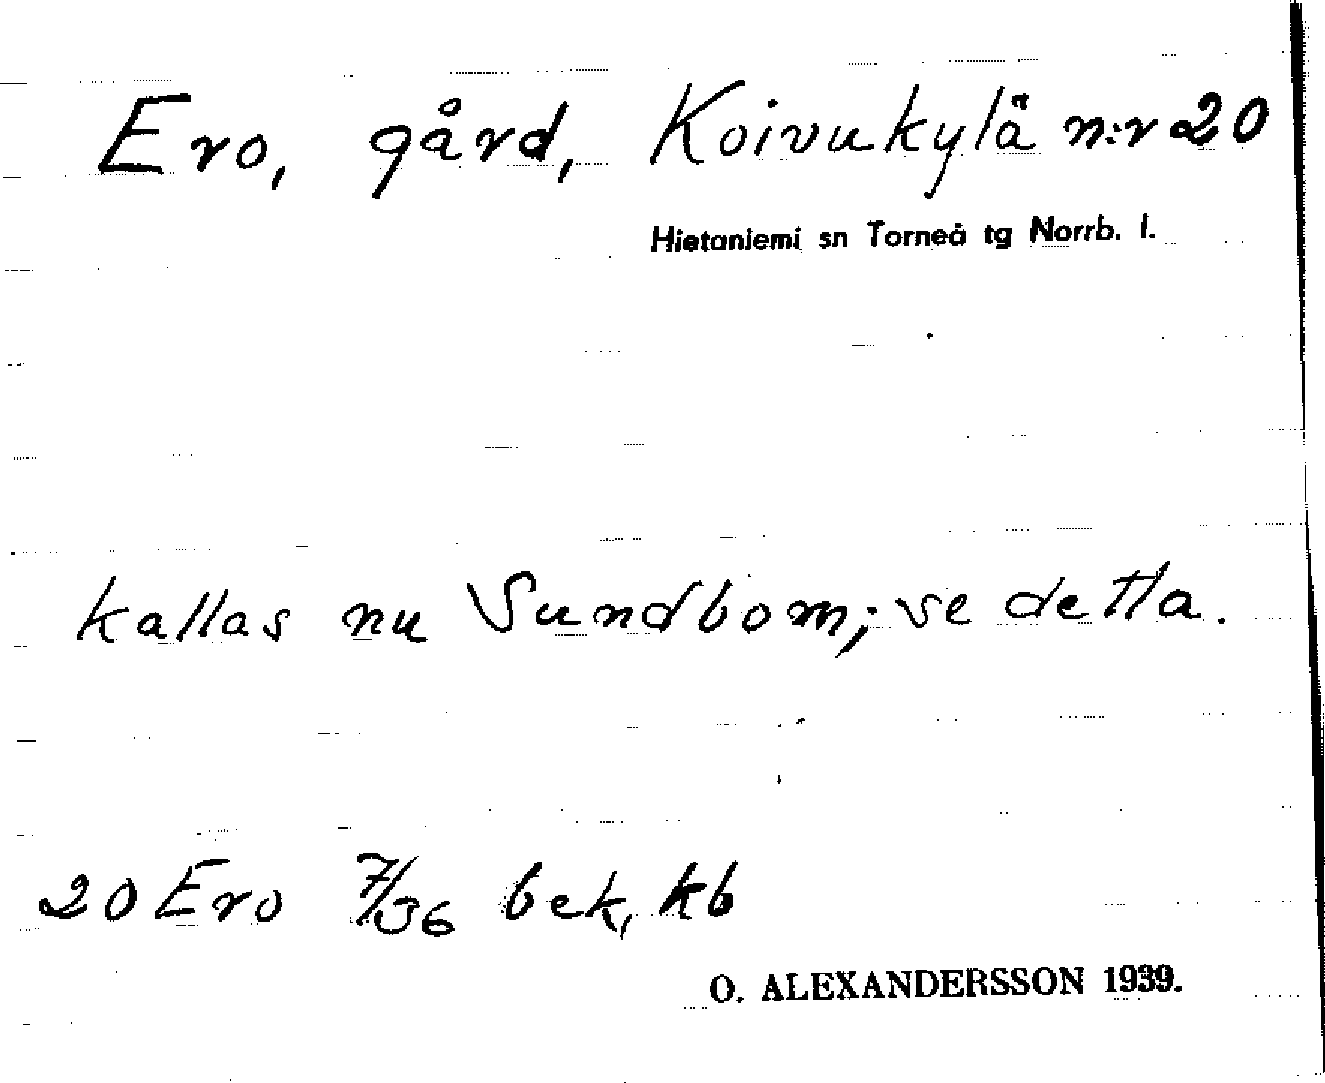 Ero, gård, Koivukylä n:r 20
Hietaniemi sn Torneå tg Norrb. l.
kallas nu Sundbom; se detta.
20 Ero 7/36 bek, kb
O. ALEXANDERSSON 1939.